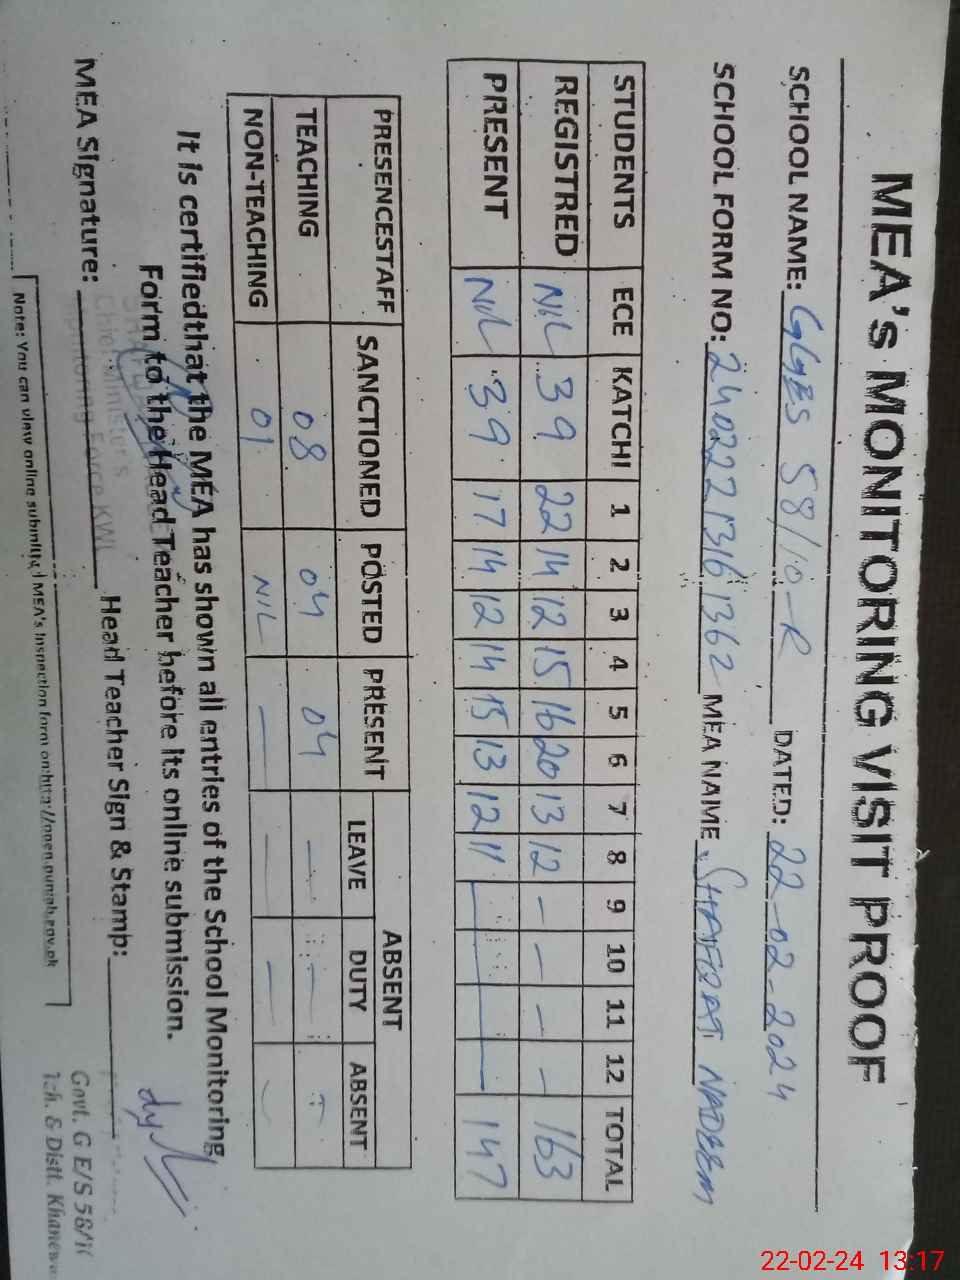 MEA's MONITORING VISIT PROOF
SCHOOL NAME: GGES 58/10-R DATED: 22-02-2024
SCHOOL FORM NO: 24022213161362 MEA NAME SHAFQAT NADEEM
STUDENTS ECE KATCHI 1 2 3 4 5 6 7 8 9 10 11 12 TOTAL
REGISTRED NIL 39 22 14 12 15 16 20 13 12 - - - - 163
PRESENT NIL 39 17 14 12 14 15 13 12 11 147
PRESENCESTAFF SANCTIONED POSTED PRESENT ABSENT
LEAVE DUTY ABSENT
TEACHING 08 04 04 - - -
NON-TEACHING 01 NIL - - - -
It is certifiedthat the MEA has shown all entries of the School Monitoring
Form to the Head Teacher before its online submission.
MEA Signature: Head Teacher Sign & Stamp:
Chief Minister's
Monitoring Force KWL
Govt. G E/S 58/10
Teh. & Distt. Khanewal
Note: You can view online submitted MEA's Inspection form on:http://open.punjab.gov.pk
22-02-24 13:17